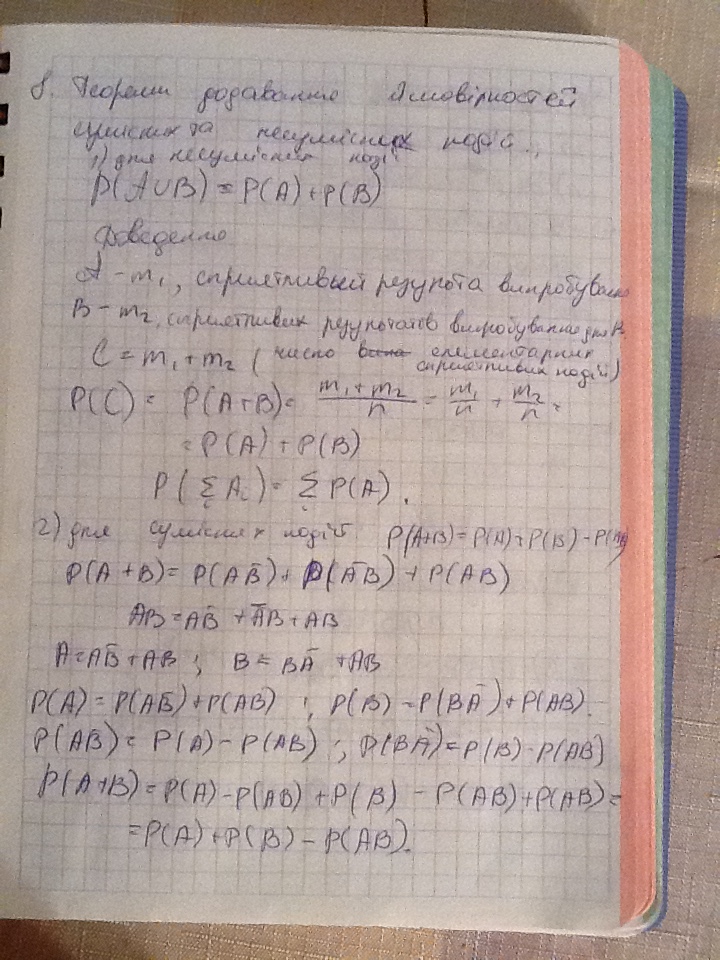 8. Теореми додавання ймовірностей
сумісних та несумісних подій.
1) для несумісних подій
P(A∪B) = P(A)+P(B)
Доведення
A – m₁, сприятливий результат випробувань
B – m₂, сприятливих результатів випробування для B.
C = m₁ + m₂ (число елементарних
сприятливих подій)
P(C) = P(A+B) = (m₁+m₂)/n = m₁/n + m₂/n =
= P(A) + P(B)
P(Σ Aᵢ) = Σ P(A).
2) для сумісних подій P(A+B)=P(A)+P(B)-P(AB)
P(A+B) = P(AB̄) + P(ĀB) + P(AB)
AB = AB̄ + ĀB + AB
A = AB̄ + AB ; B = BĀ + AB
P(A) = P(AB̄) + P(AB) ; P(B) = P(BĀ) + P(AB).
P(AB̄) = P(A) – P(AB) ; P(BĀ) = P(B) – P(AB)
P(A+B) = P(A) – P(AB) + P(B) – P(AB) + P(AB) =
= P(A) + P(B) – P(AB).